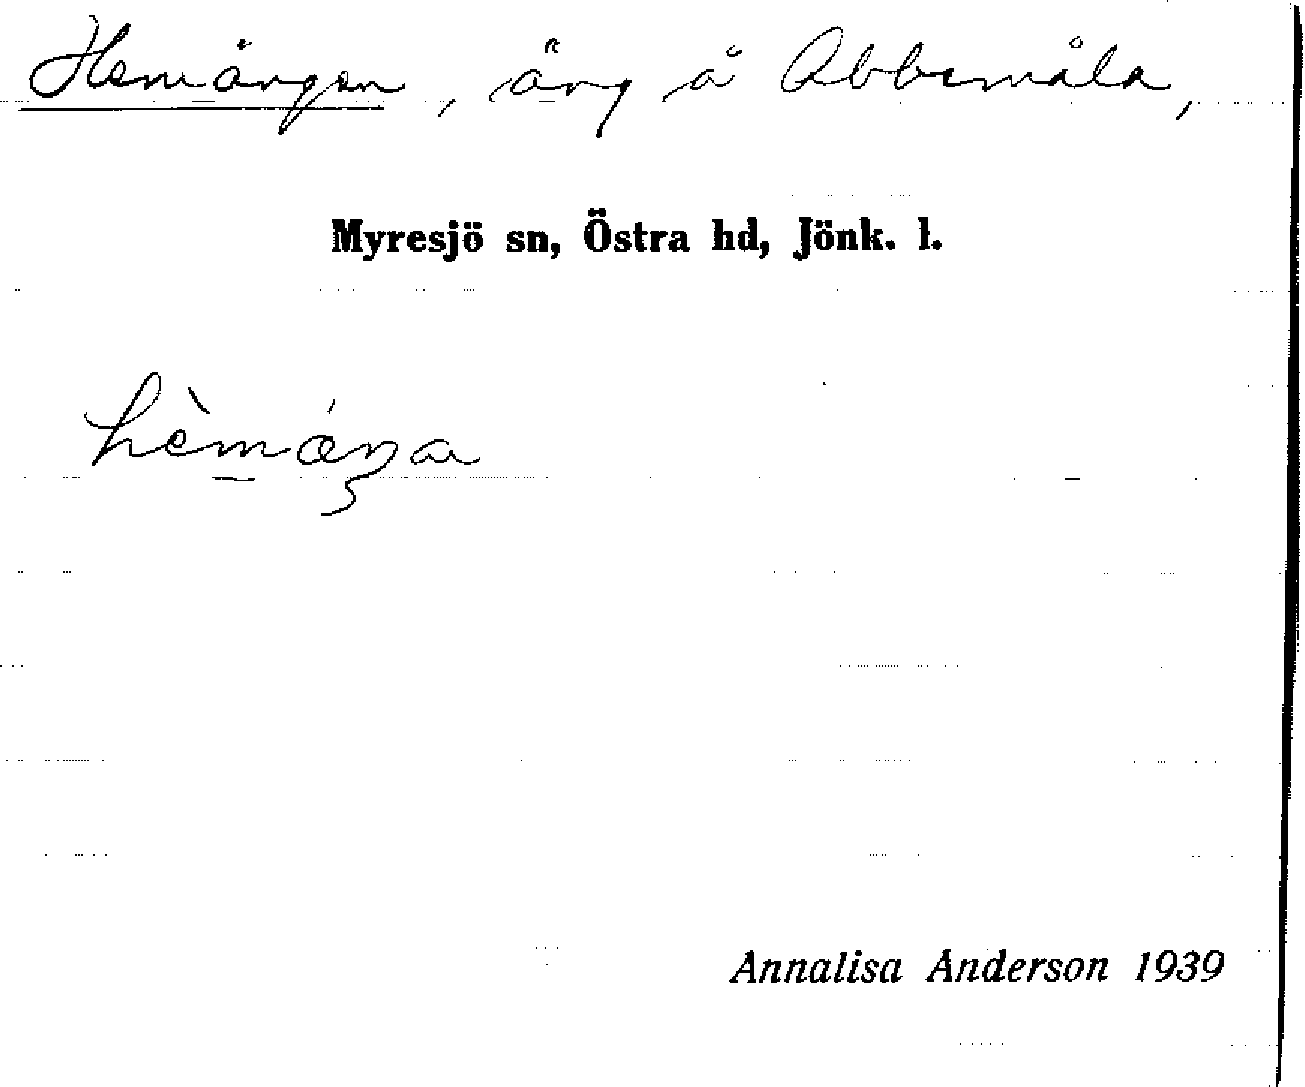 Hemängen, äng å Abbemåla,
Myresjö sn, Östra hd, Jönk. l.
hèmǽŋa
Annalisa Anderson 1939